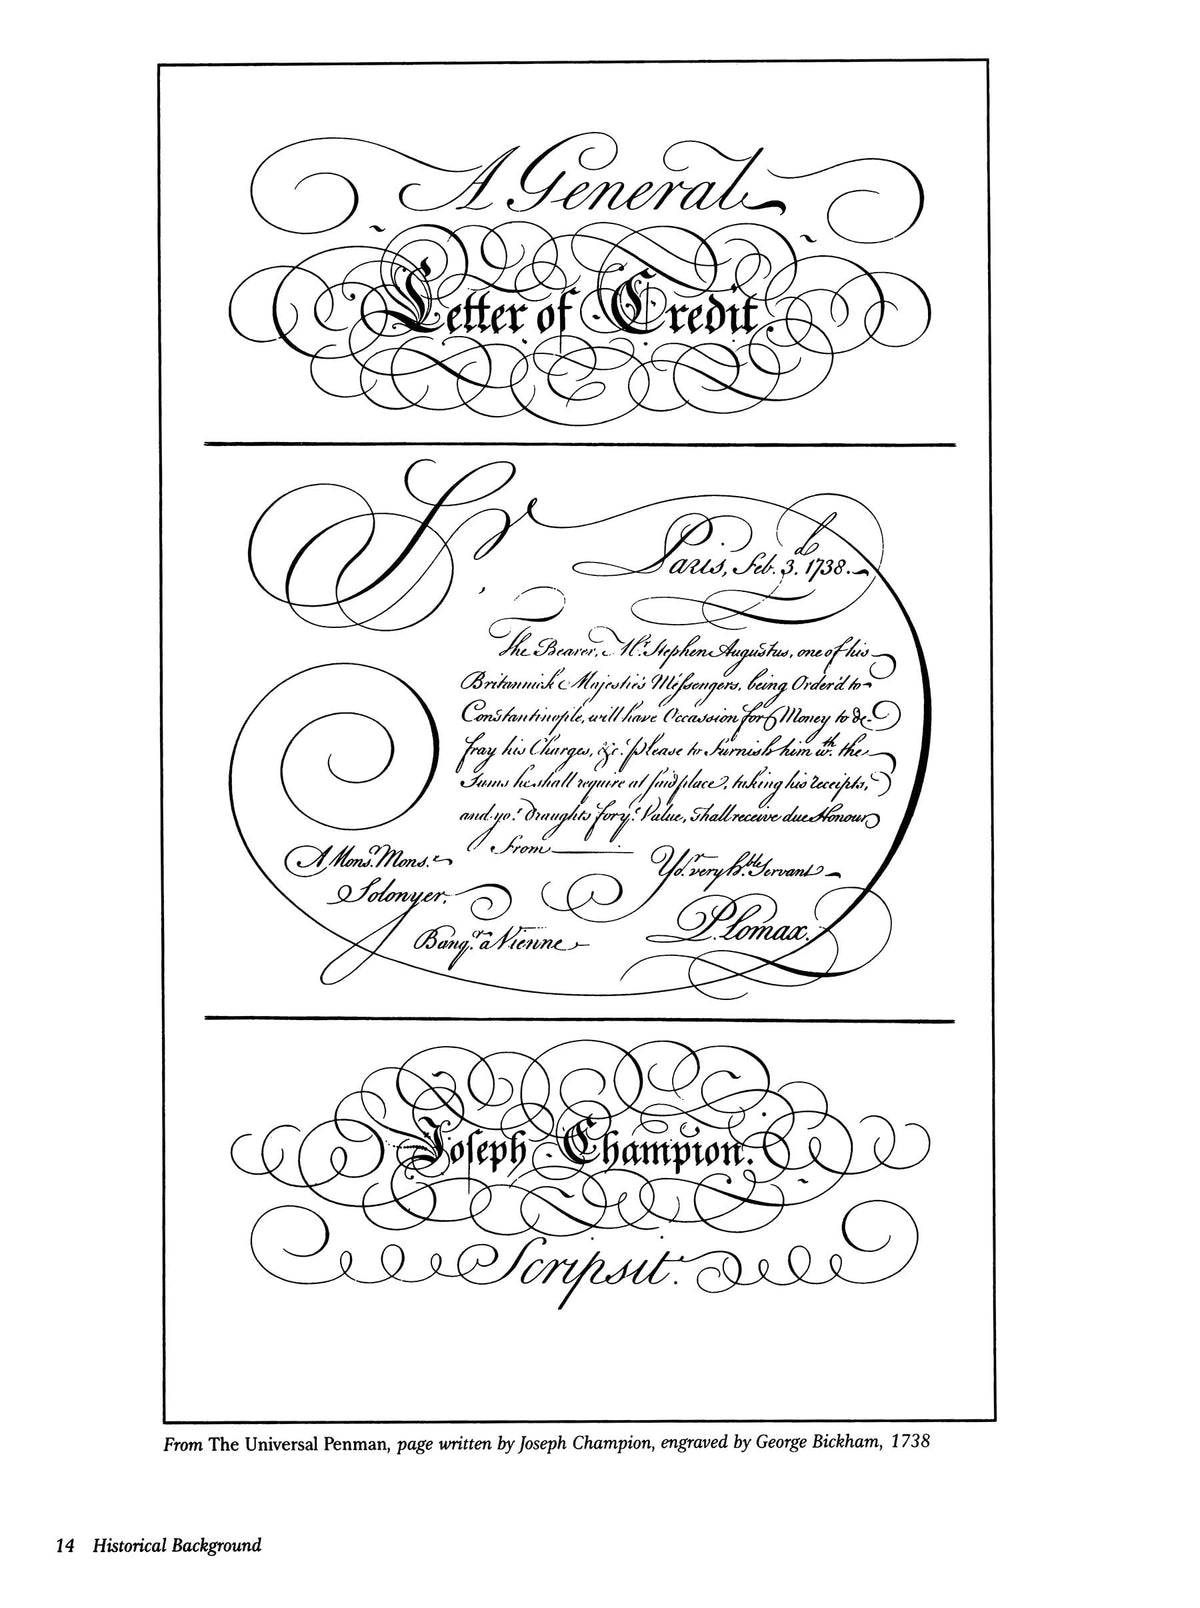 A General
Letter of Credit.
Sr.
Paris, Feb. 3.d 1738.
The Bearer, Mr. Stephen Augustus, one of his
Britannick Majestie's Messengers, being Order'd to
Constantinople, will have Occassion for Money to de-
fray his Charges, &c. please to Furnish him wth. the
Sums he shall require at said place, taking his receipts,
and yor. Draughts for ye. Value, Shall receive due Honour
From
Yor. very hble. Servant
A Monsr. Mons.r
Solonyer.
P. Lomax.
Banqr. a Vienne
Joseph Champion.
Scripsit.
From The Universal Penman, page written by Joseph Champion, engraved by George Bickham, 1738
14 Historical Background